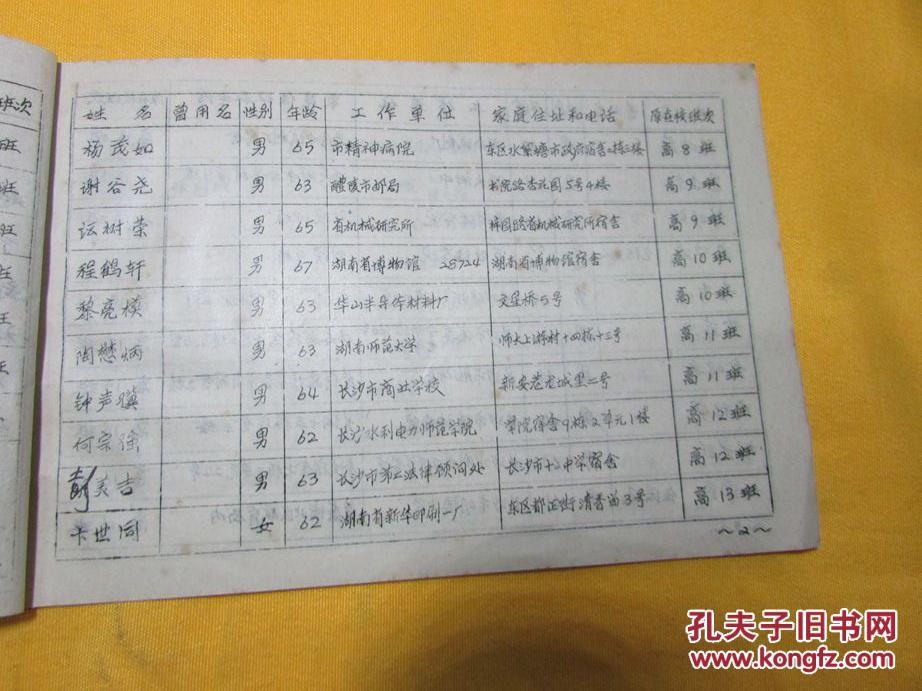 班次
班
班
班
班
姓 名 曾用名 性别 年龄 工作单位 家庭住址和电话 原在校班次
杨茂如 男 65 市精神病院 东区水絮塘市政府宿舍 高8班
谢谷尧 男 63 醴陵市邮局 书院路杏花园5号4楼 高9班
沄树荣 男 65 省机械研究所 梓园路省机械研究所宿舍 高9班
程鹤轩 男 67 湖南省博物馆 28724 湖南省博物馆宿舍 高10班
黎亮模 男 63 华山半导体材料厂 文星桥5号 高10班
陶懋炳 男 63 湖南师范大学 师大上游村十四栋十三号 高11班
钟声骥 男 64 长沙市商业学校 新安巷龙城里二号 高11班
何宗淦 男 62 长沙水利电力师范学院 学院宿舍9栋2单元1楼 高12班
彭美吉 男 63 长沙市第二法律顾问处 长沙市十二中学宿舍 高12班
卡世同 女 62 湖南省新华印刷一厂 东区都正街清香留3号 高13班
~2~
孔夫子旧书网
www.kongfz.com